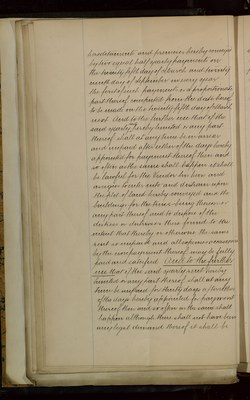 hereditaments and premises hereby
by two equal half yearly payments on
the twenty fifth day of March and twenty
ninth day of September in every year
the first of such payments or a proportionate
part thereof computed from the date hereof
to be made on the twenty fifth day of March
next And to the further use that if the
said yearly hereby limited or any part
thereof shall at any time be in arrear
and unpaid after either of the days hereby
appointed for payment thereof then and
so often as the same shall happen it shall
be lawful for the Vendor his heirs and
assigns to enter into and distrain upon
the plot of land hereby conveyed and the
buildings for the time being thereon or
any part thereof and to dispose of the
distress or distresses then found to the
intent that thereby or otherwise the same
rent in arrear and all expenses occasioned
by the nonpayment thereof may be fully
paid and satisfied And to the further
use that if the said yearly rent hereby
limited or any part thereof shall at any
time be unpaid for thirty days after either
of the days hereby appointed for payment
thereof then and so often as the same shall
happen although there shall not have been
any legal demand thereof it shall be